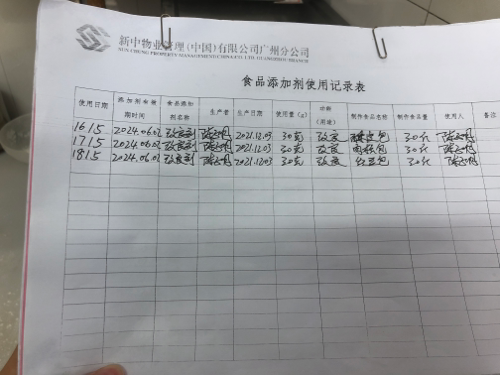 新中物业管理(中国)有限公司广州分公司
食品添加剂使用记录表
使用日期 添加剂有效期时间 食品添加剂名称 生产者 生产日期 使用量(g) 功能(用途) 制作食品名称 制作食品量 使用人 备注
1615 2024.06.02 改良剂 2021.12.03 30克 改良 包 30斤
1715 2024.06.02 改良剂 2021.12.03 30克 改良 肉松包 30斤
1815 2024.06.02 改良剂 2021.12.03 30克 改良 红豆包 30斤